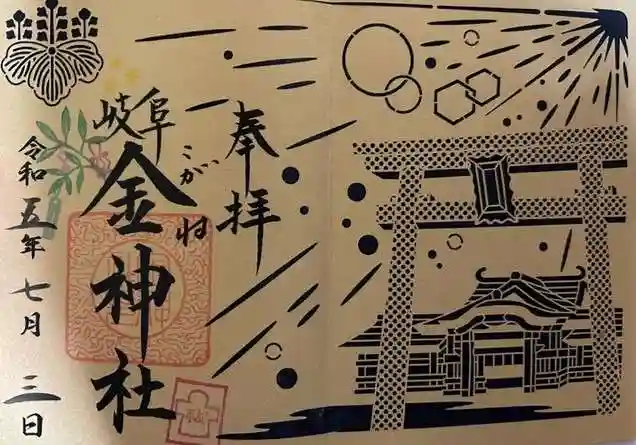 奉拝
岐阜
こがね
金神社
令和五年七月三日